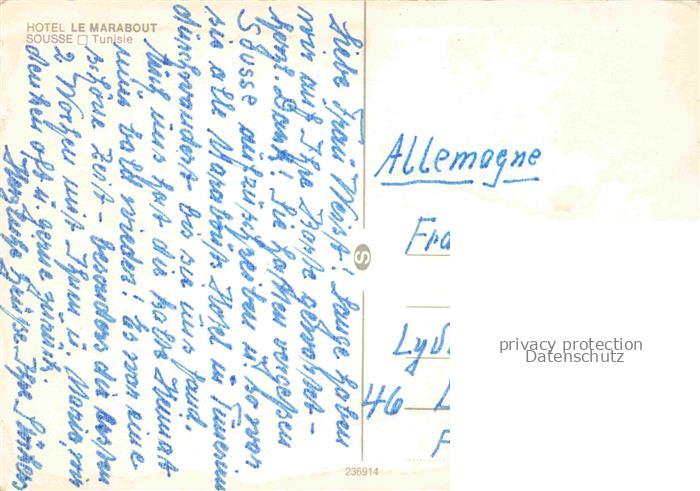 HOTEL LE MARABOUT
SOUSSE □ Tunisie
Liebe Frau Wenst! Lange haben
wir auf Ihre Post gewartet -
herzl. Dank! Sie hatten vergessen
Sousse aufzuschreiben u. so war
sie alle Marabout Hotel in Tunesien
durchwandert bis sie uns fand.
Auch uns hat die halbe Heimat
nun bald wieder! Es war eine
schöne Zeit - besonders die ersten
2 Wochen mit Ihnen u. Maria, wir
denken oft u. gerne zurück.
Herzliebe Grüße, Ihre
Allemagne
Fra
Lyd
46 L
F
S
236914
privacy protection
Datenschutz